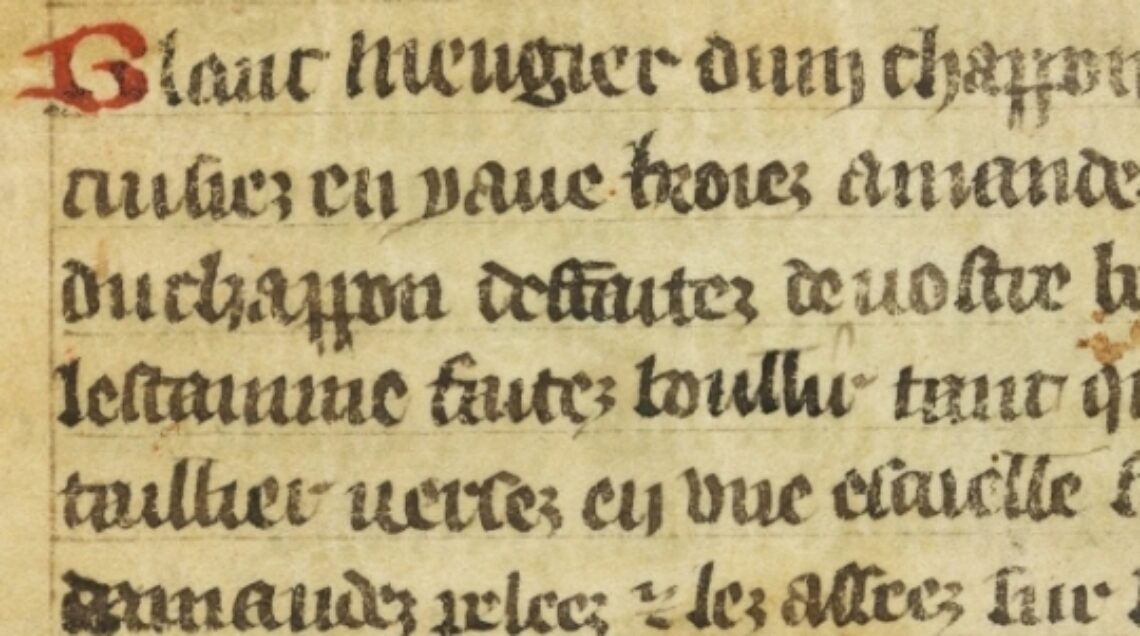 Blanc mengier dun chappon
cuisiez en yaue broiez amande
du chappon deffaitez de uostre
lestamine faitez boullir tant
taillier uersez en vne escuelle
damandez pelees ⁊ lez asseez sur